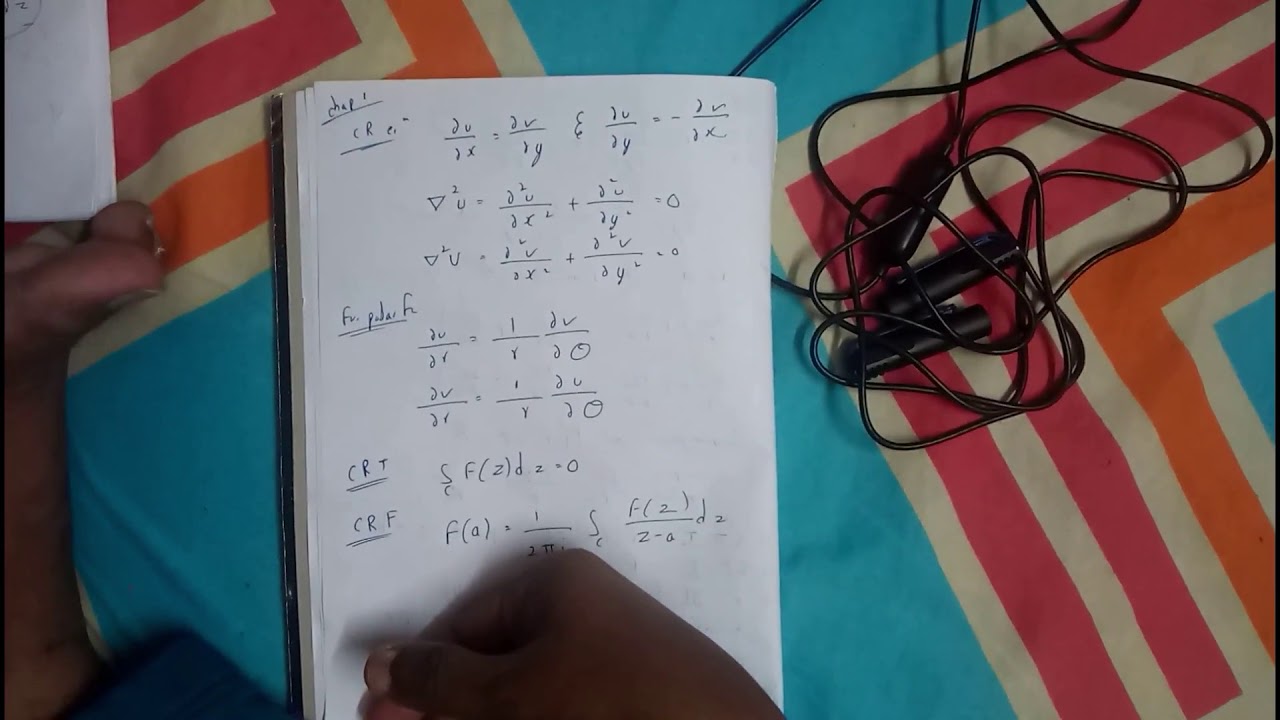 chap 1
CR eq ∂u/∂x = ∂v/∂y & ∂u/∂y = - ∂v/∂x
∇²u = ∂²u/∂x² + ∂²u/∂y² = 0
∇²v = ∂²v/∂x² + ∂²v/∂y² = 0
For polar
∂u/∂r = 1/r ∂v/∂θ
∂v/∂r = 1/r ∂u/∂θ
CRT ∫c F(z)dz = 0
CRF F(a) = 1/2πi ∫c F(z)/z-a dz